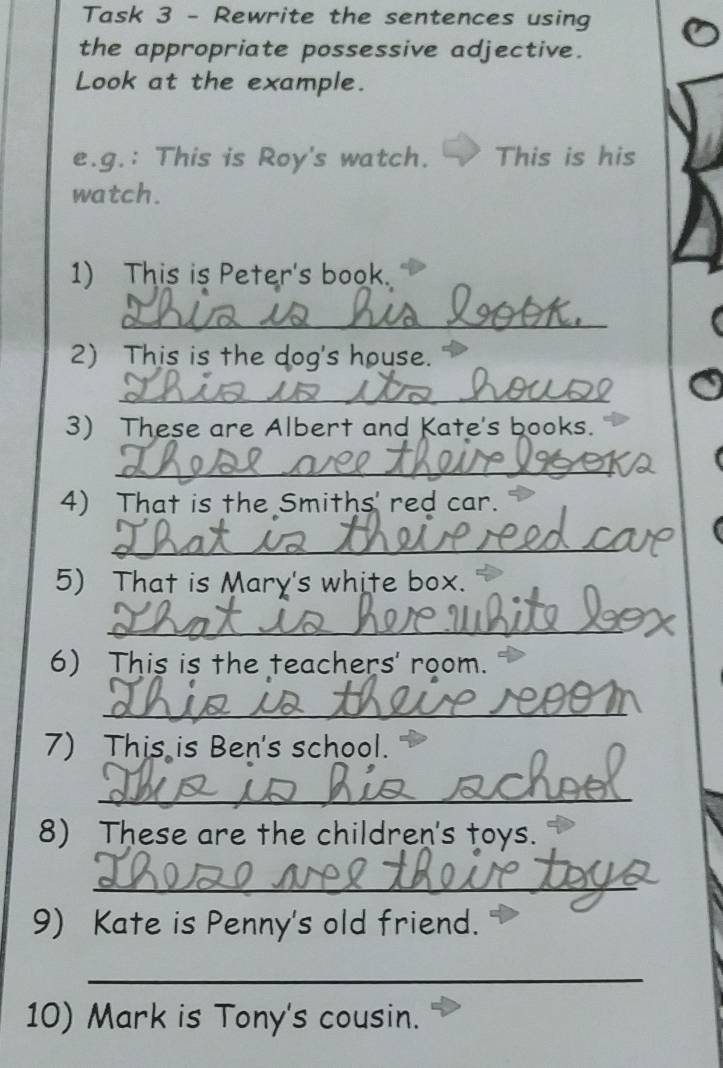 Task 3 - Rewrite the sentences using
the appropriate possessive adjective.
Look at the example.
e.g.: This is Roy's watch. This is his
watch.
1) This is Peter's book.
This is his book.
2) This is the dog's house.
This is its house
3) These are Albert and Kate's books.
These are their books
4) That is the Smiths' red car.
That is their red car
5) That is Mary's white box.
That is her white box
6) This is the teachers' room.
This is their room
7) This is Ben's school.
This is his school
8) These are the children's toys.
These are their toys
9) Kate is Penny's old friend.
10) Mark is Tony's cousin.